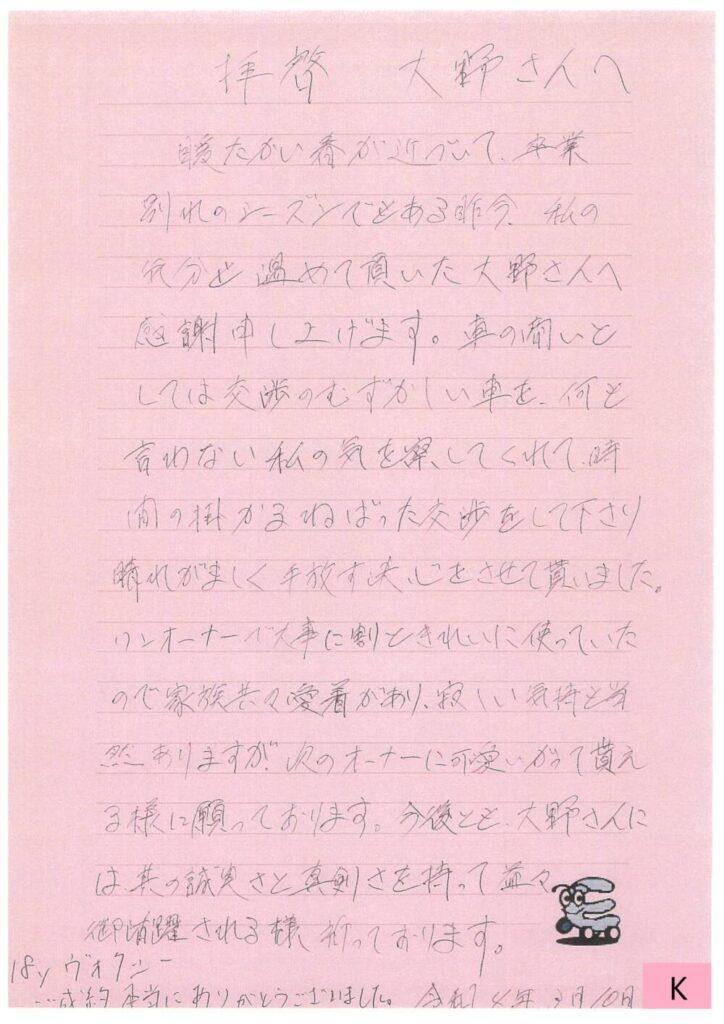 拝啓　大野さんへ
暖たかい春が近づいて、卒業
別れのシーズンでもある昨今、私の
気分も温めて頂いた大野さんへ
感謝申し上げます。車の商いと
しては交渉のむずかしい車を、何も
言わない私の気を察してくれて、時
間の掛かるねばった交渉をして下さり
晴れがましく手放す決心をさせて貰いました。
ワンオーナーで大事に割ときれいに使っていた
ので家族共々愛着があり、寂しい気持も当
然ありますが、次のオーナーに可愛いがって貰え
る様に願っております。今後とも、大野さんに
は、其の誠実さと真剣さを持って益々
御活躍される様、祈っております。
18y ヴォクシー
成約 本当にありがとうございました。 令和4年3月10日
K